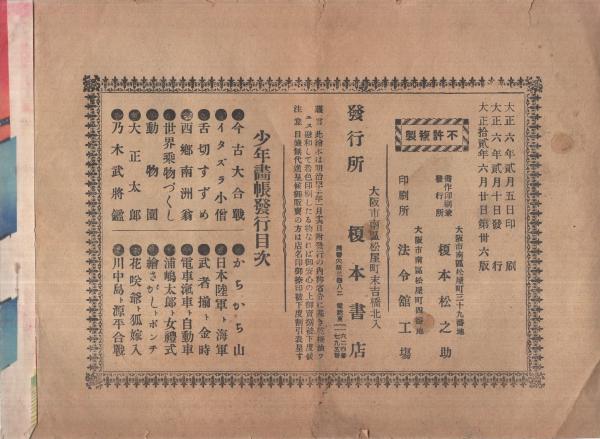 大正六年貳月五日印刷
大正六年貳月十日發行
大正拾貳年六月廿日第卅六版
不許複製
著作印刷兼發行所
大阪市南區松屋町三十九番地
榎本松之助
大阪市南區松屋町四番地
印刷所
法令舘工場
大阪市南區松屋町末吉橋北入
發行所
榎本書店
少年畵帳發行目次
今古大合戰
イタズラ小僧
舌切すずめ
西郷南洲翁
世界乘物づくし
動物園
大正太郎
乃木武將鑑
かちかち山
日本陸軍ト海軍
武者揃ト金時
電車滊車ト自動車
浦嶋太郎ト女禮式
繪さがしトポンチ
花咲爺ト狐嫁入
川中島ト源平合戰